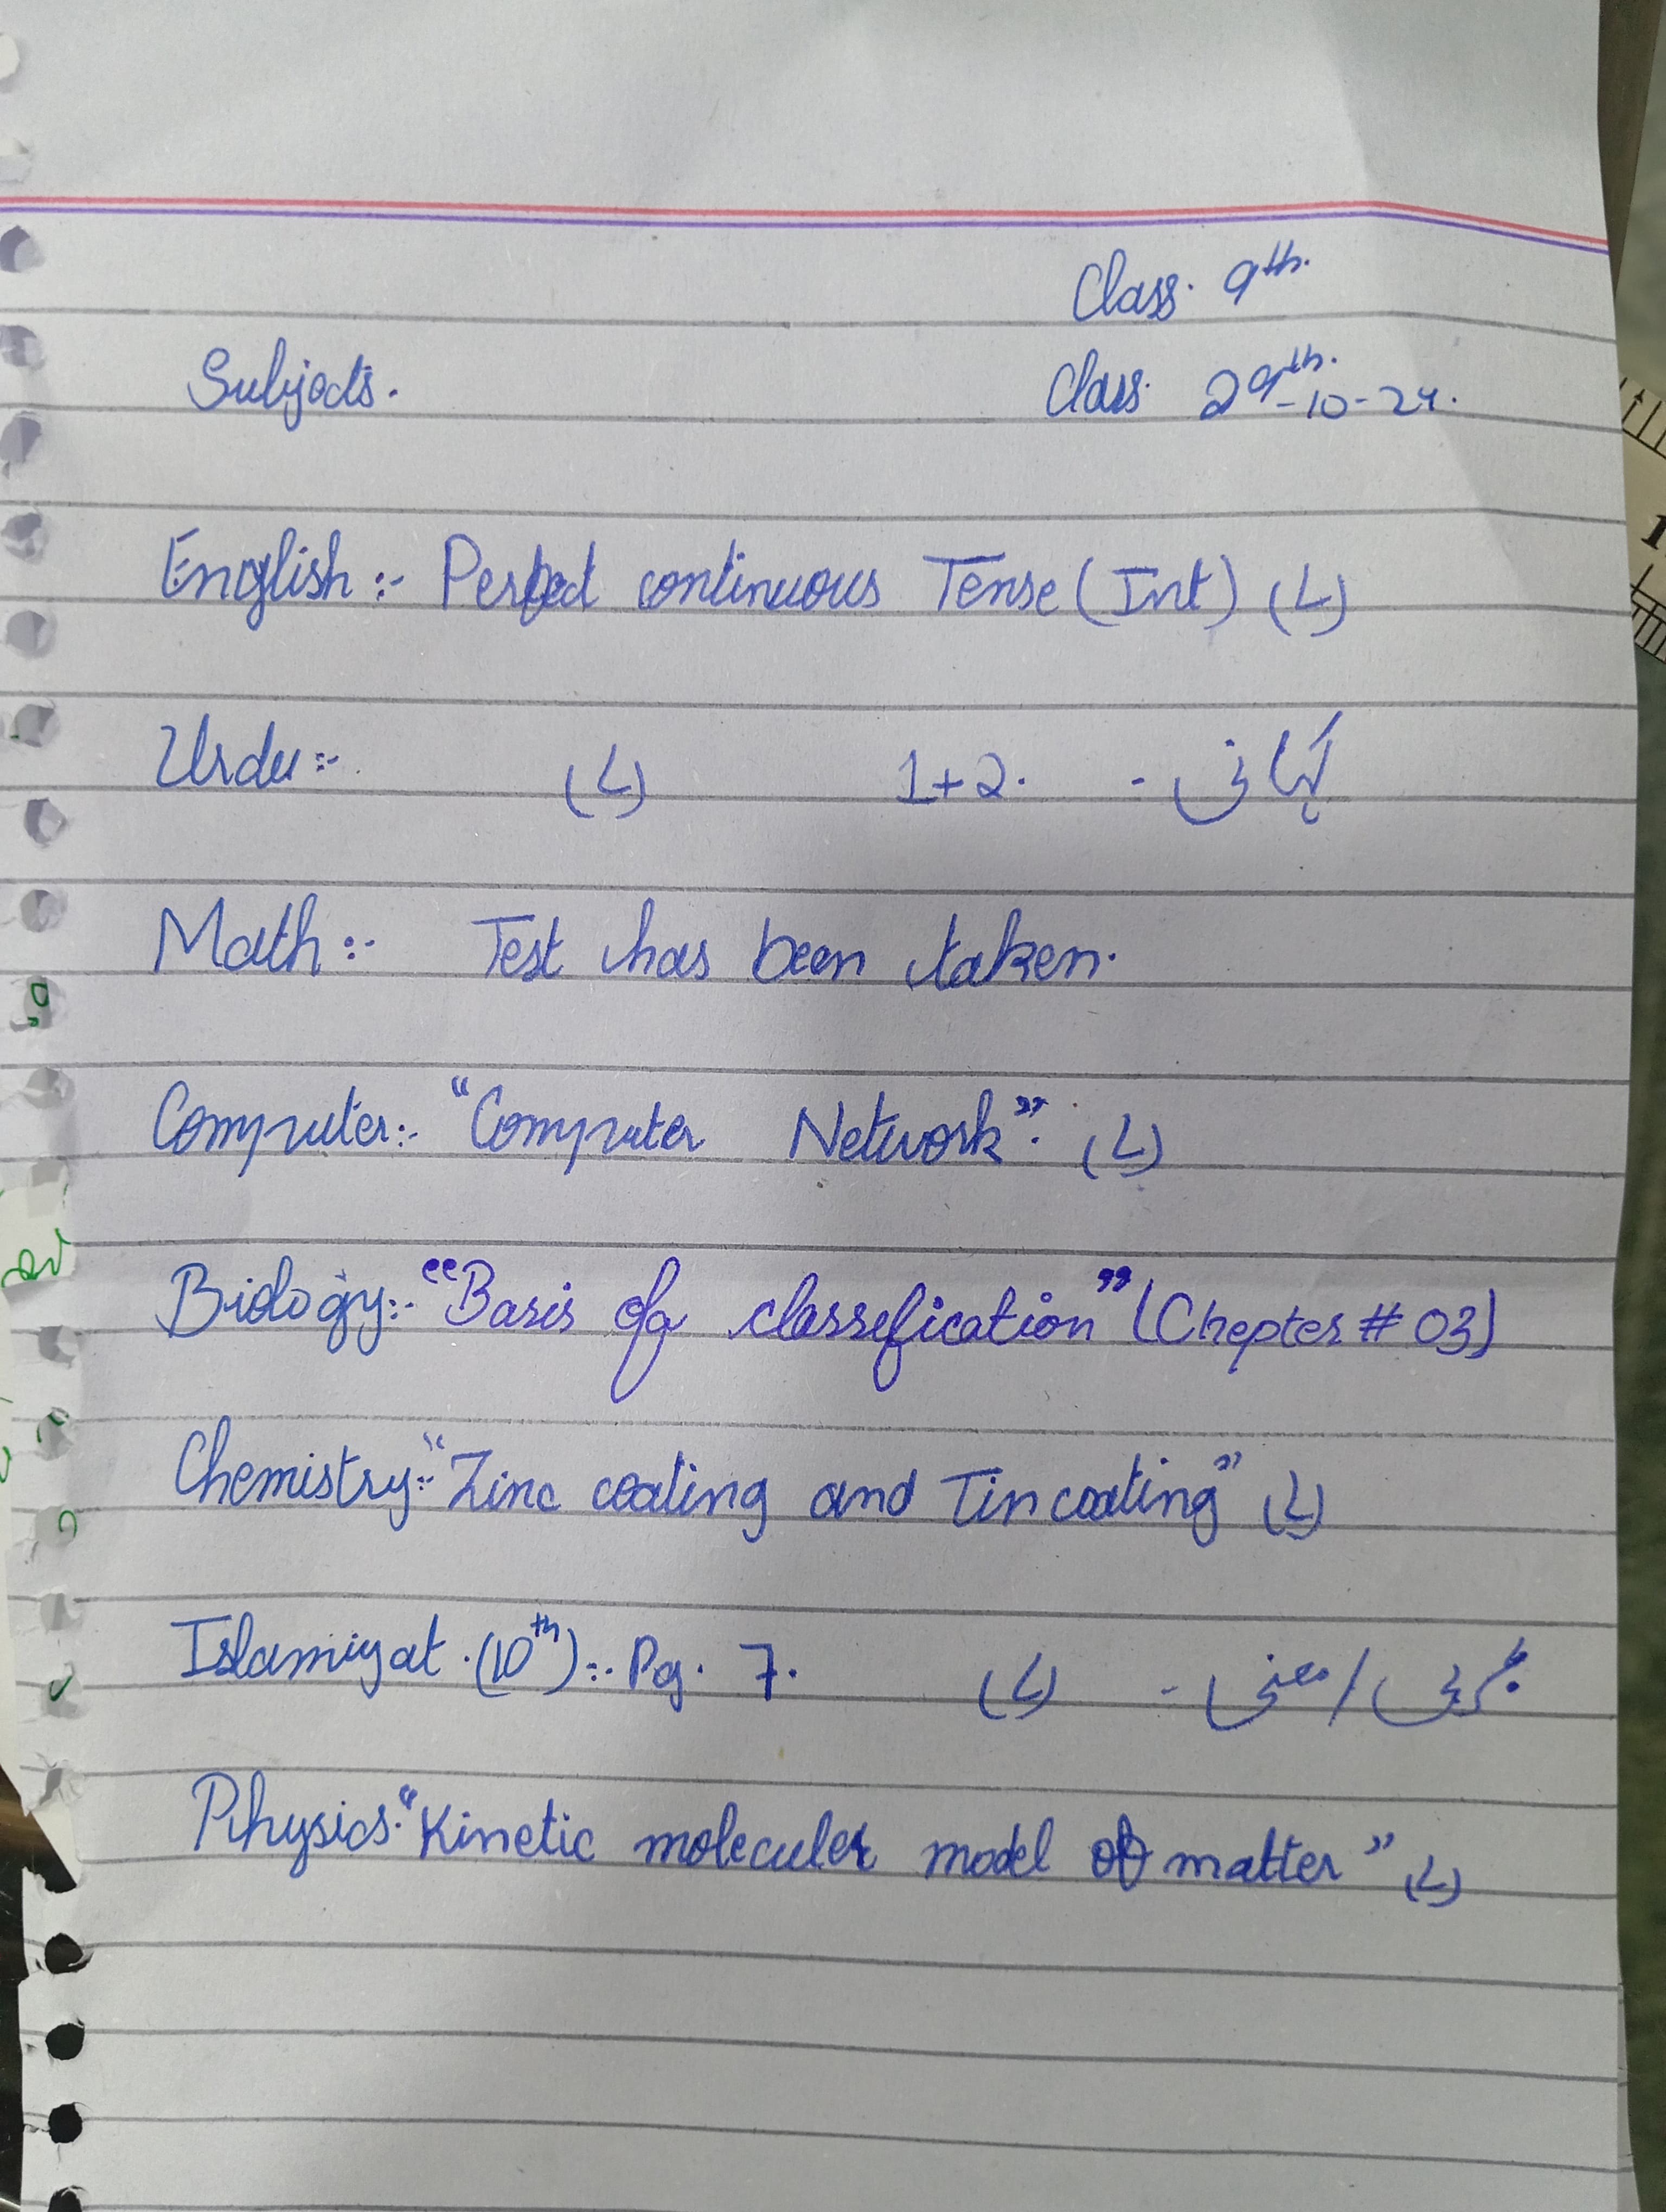 Class. 9th.
Subjects.
Class. 29th-10-24.
English:- Perfect continuous Tense (Int) (L)
Urdu:- (L) 1+2. کہانی -
Math:- Test has been taken.
Computer:- "Computer Network". (L)
Biology:- "Basis of classefication" (Chepter # 03)
Chemistry:- "Zinc coating and Tin coating" (L)
Islamiyat. (10th):- Pg. 7. (L) - معنی /
Physics. "Kinetic moleculer model of matter" (L)